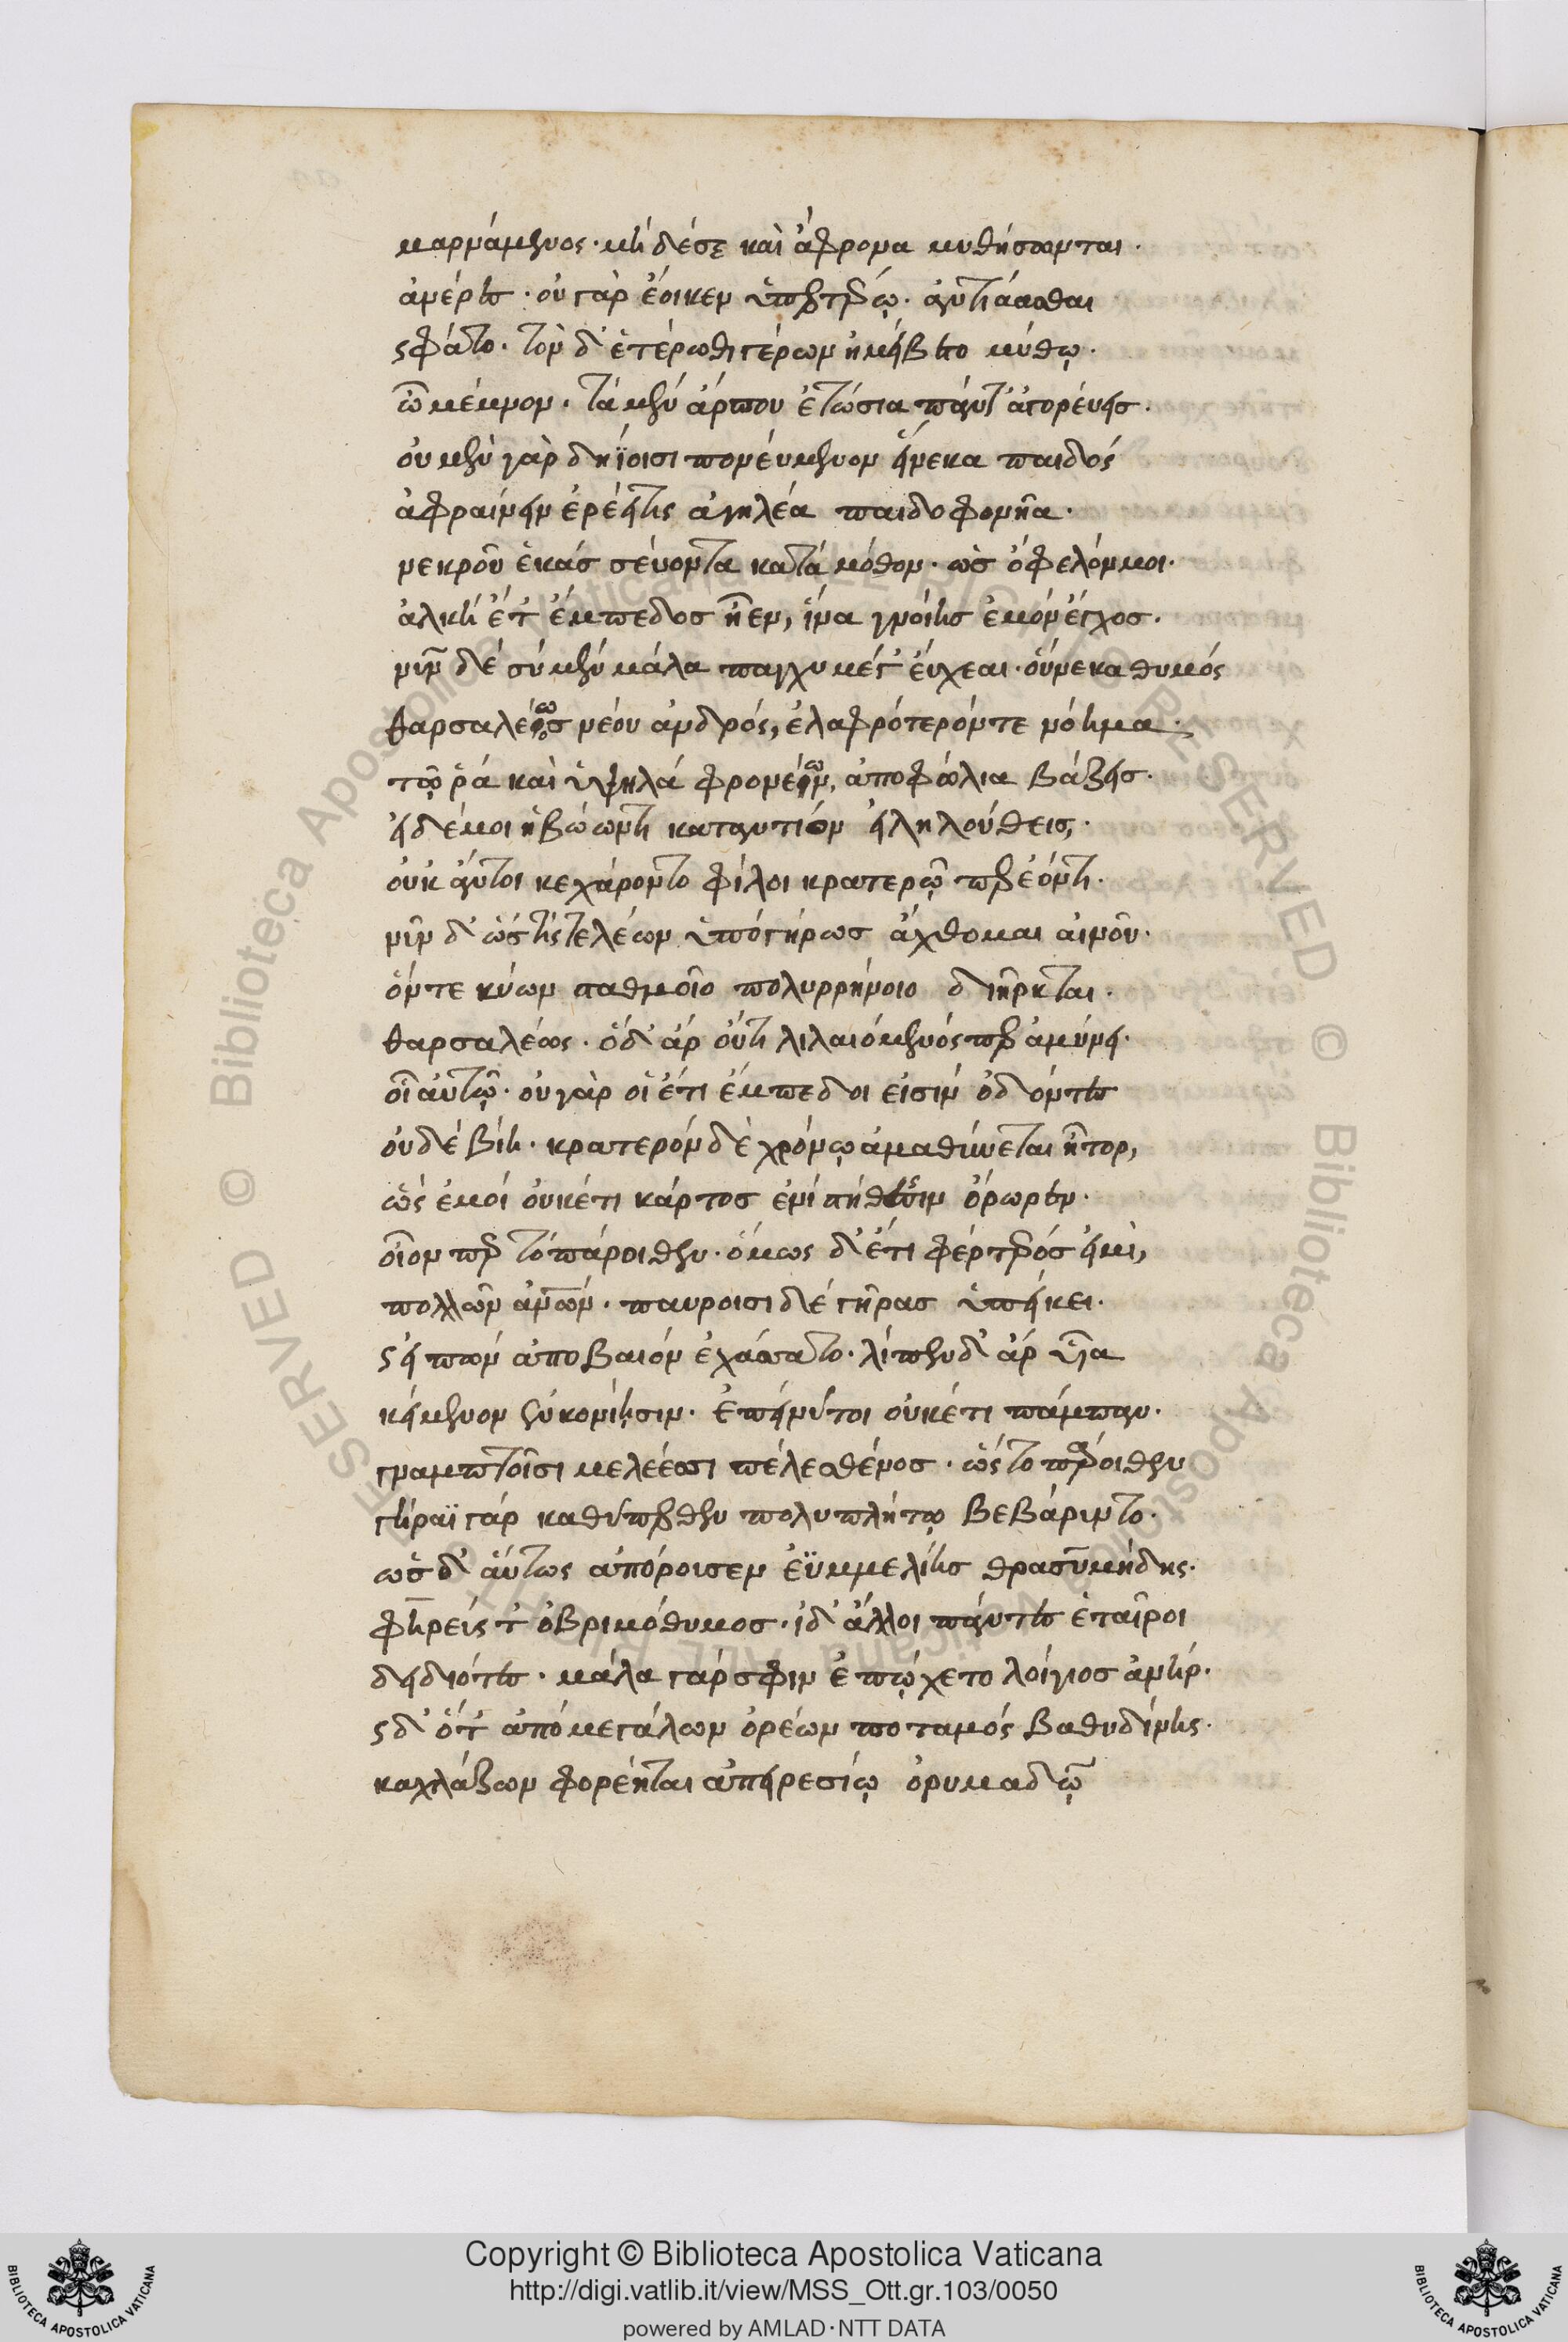 μαρνάμενος· μὴ δέ σε καὶ ἄφρονα μυθήσωνται·
ἀνέρες· οὐ γὰρ ἔοικεν ὑπερτέρῳ· ἀντιάασθαι
ὣς φάτο· τὸν δ' ἑτέρωθι γέρων ἠμείβετο μύθῳ·
ὦ μέμνον· τὰ μὲν ἄρπου ἐτώσια πάντ' ἀγορεύεις·
οὐ μὲν γὰρ δηΐοισι πονεύμενον εἵνεκα παιδός
ἀφραίνειν ἐρέει τις ἀνηλέα παιδοφονῆα·
νεκροῦ ἑκάς σεύοντα κατὰ μόθον· ὡς ὄφελόν μοι·
ἀλκὴ ἔτ' ἔμπεδος ἦεν, ἵνα γνοίης ἐμόν ἔγχος·
νῦν δέ σύ μὲν μάλα παγχυ μέγ' εὔχεαι· οὕνεκα θυμός
θαρσαλέως νέου ἀνδρός, ἐλαφρότερόν τε νόημα·
τῷ ῥά καὶ ὑψηλά φρονέων, ἀποφώλια βάζεις·
εἰ δέ μοι ἡβώωντι καταντίον εἰληλούθεις,·
οὐκ ἄν τοι κεχάροντο φίλοι κρατερῷ περ ἐόντι·
νῦν δ' ὥς τίς τε λέων ὑπό γήρως ἄχθομαι αἰνοῦ·
ὅν τε κύων σταθμοῖο πολυρρήνοιο
θαρσαλέως· ὁ δ' ἄρ οὔτι λιλαιόμενός περ ἀμύνει·
οἷ αὐτῷ· οὐ γάρ οἱ ἔτι ἔμπεδοι εἰσίν ὀδόντες
οὐδέ βίη· κρατερόν δὲ χρόνῳ ἀμαθύνεται ἦτορ,
ὣς ἐμοί οὐκέτι κάρτος ἐνί στήθεσσιν ὄρωρεν·
οἷον περ τό πάροιθεν· ὅμως δ' ἔτι φέρτερός εἰμὶ,
πολλῶν ἀνων· παυροισι δέ γῆρας ὑπείκει·
ὣς εἰπών ἀπο βαιόν ἐχάσσατο· λίπεν δ' ἄρ υἷα
κείμενον ἐν κονίῃσιν· ἐπεί νύ τοι οὐκέτι πάμπαν·
γναμπτοῖσι μελέεσσι πέλε σθένος· ὡς το πάροιθεν
γήραϊ γάρ καθύπερθεν πολυτλήτῳ βεβάρυντο·
ὣς δ' αὔτως ἀπόρουσεν ἐϋμμελίης θρασυμήδης·
φηρεύς τ' ὀβριμόθυμος· ἰδ' ἄλλοι πάντες ἑταῖροι
δειδιότες· μάλα γάρ σφιν ἐπῴχετο λοίγιος ἀνήρ·
ὡς δ' ὅτ' ἀπό μεγάλων ὀρέων ποταμός βαθυδίνης·
καχλάζων φορέηται ἀπειρεσίῳ ὀρυμαδῷ
Copyright © Biblioteca Apostolica Vaticana
http://digi.vatlib.it/view/MSS_Ott.gr.103/0050
powered by AMLAD·NTT DATA